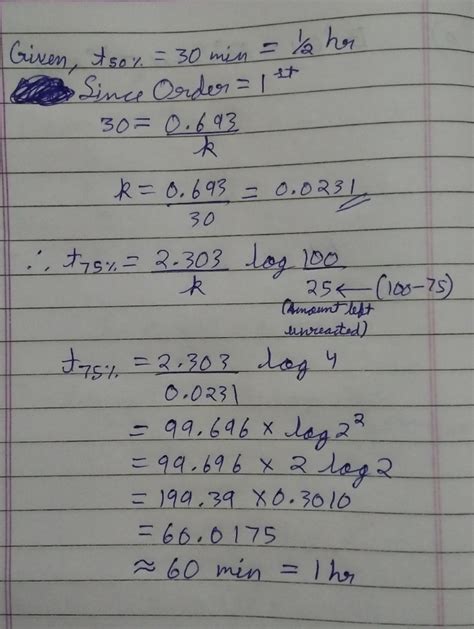 Given, t50% = 30 min = 1/2 hr
Since Order = 1st
30 = 0.693/k
k = 0.693/30 = 0.0231
∴ t75% = 2.303/k log 100/25 ← (100-75)
(Amount left
unreacted)
t75% = 2.303/0.0231 log 4
= 99.696 × log 2²
= 99.696 × 2 log 2
= 199.39 × 0.3010
= 60.0175
≈ 60 min = 1 hr